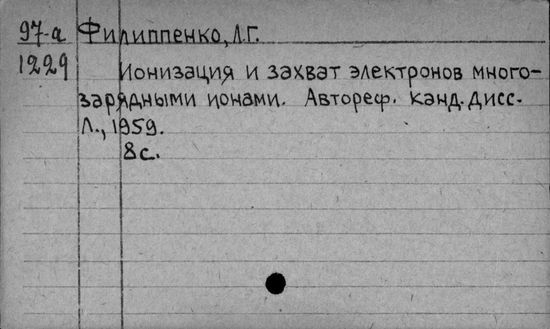 97-а Филиппенко, Л.Г.
1229
Ионизация и захват электронов много-
зарядными ионами. Автореф. канд. дисс.
Л., 1959.
8с.